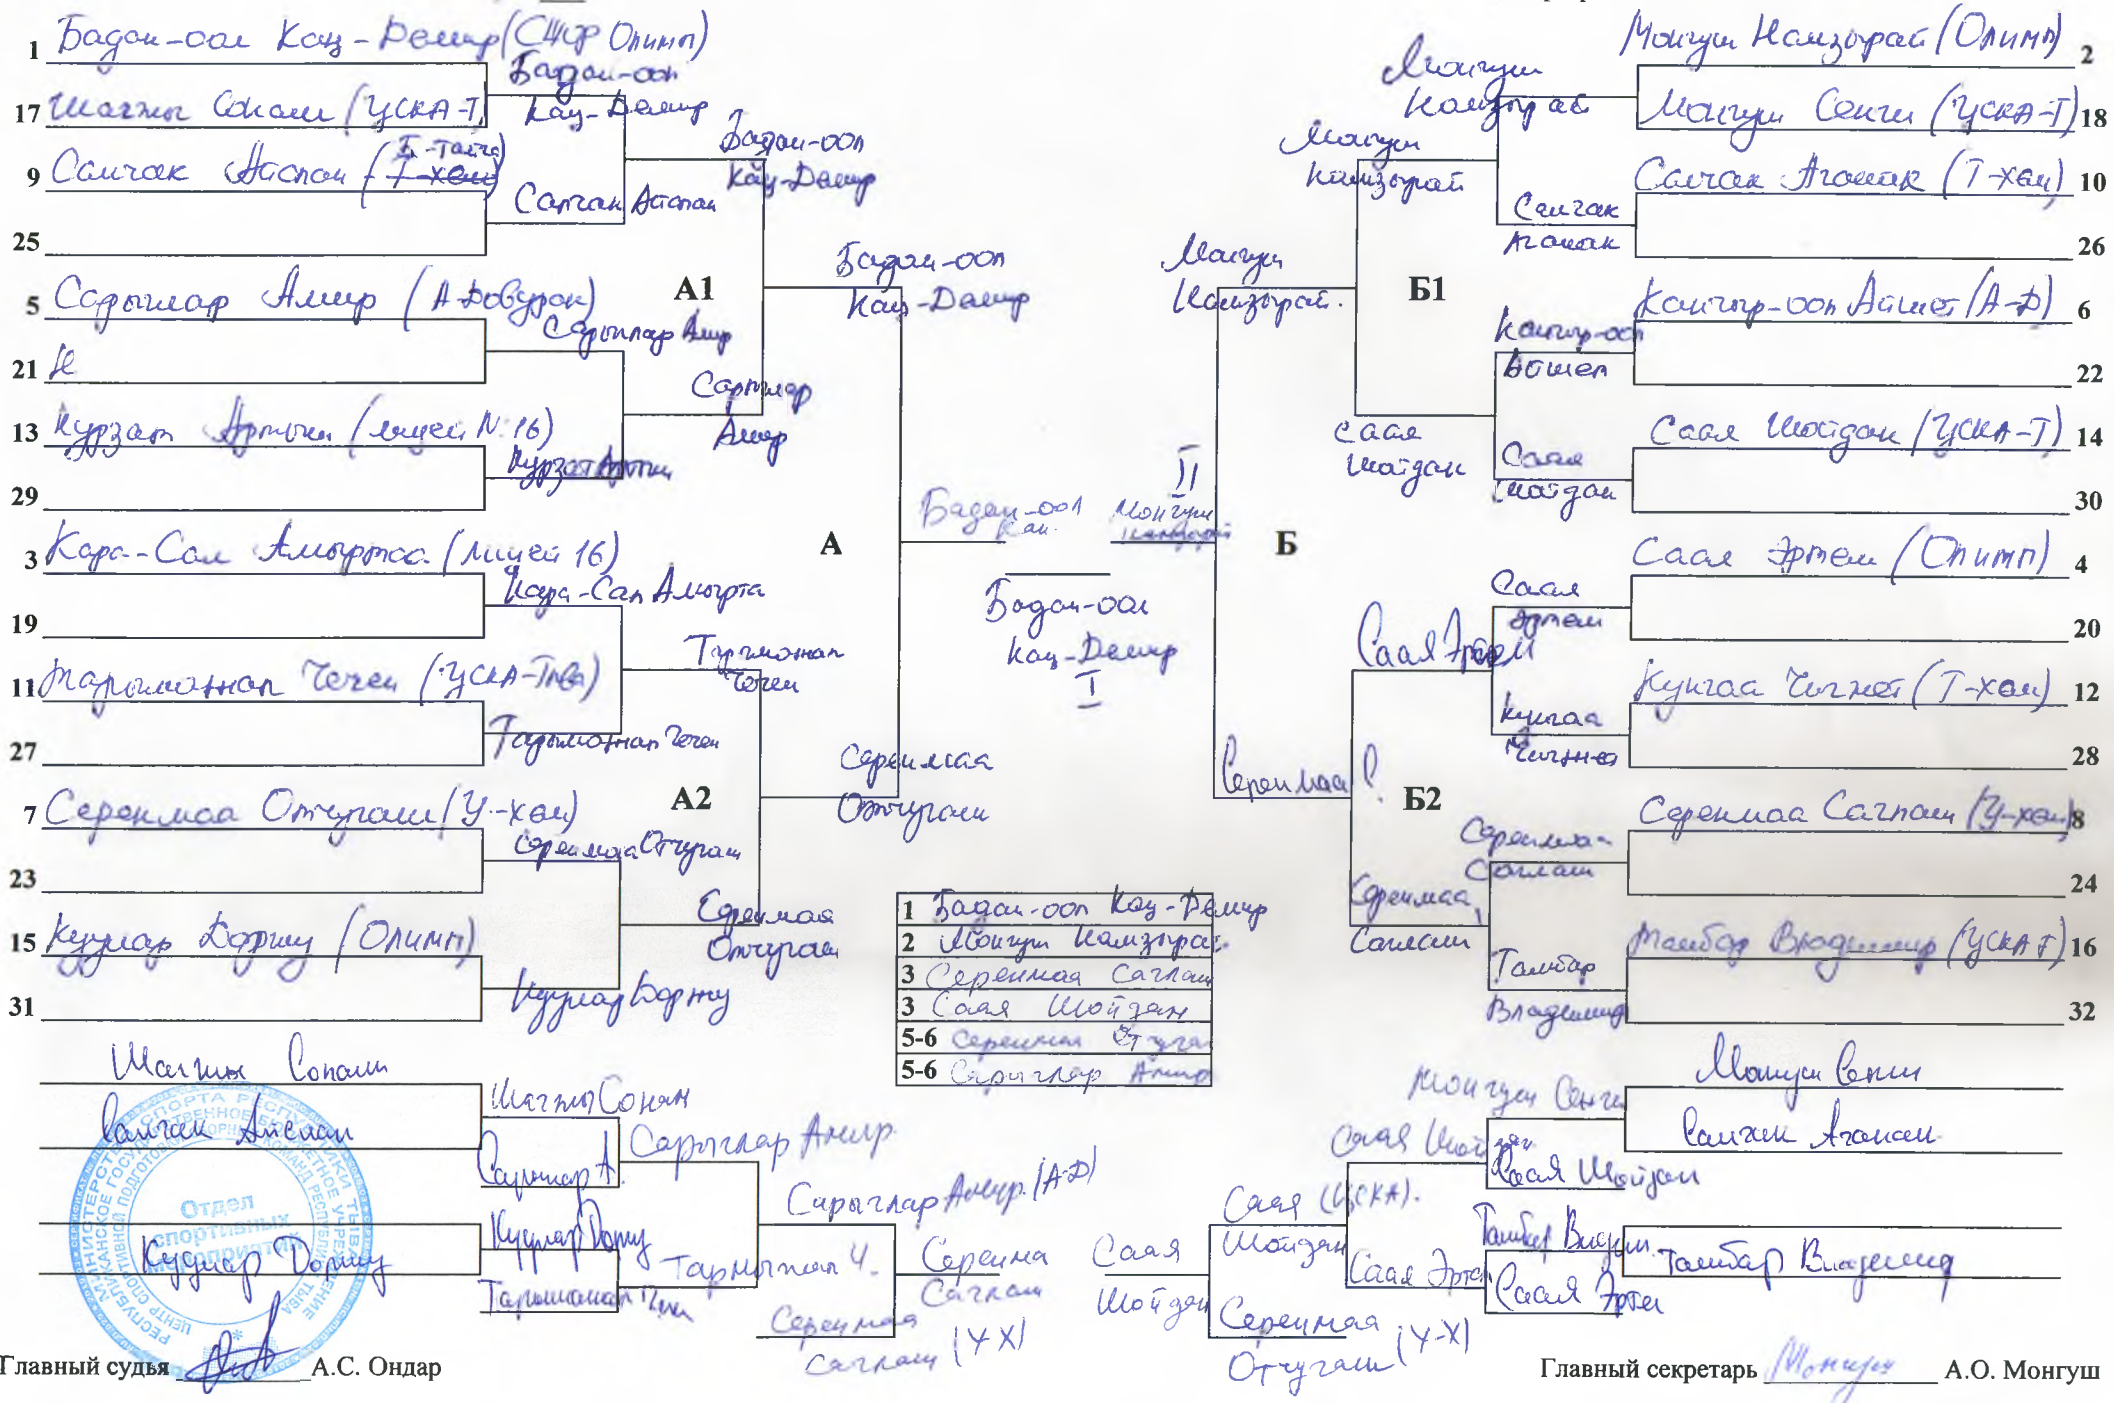 1 Бадан-оол Кан-Демир (СШОР Олимп)
17 Шагжы Сонам (ЦСКА-Т)
9 Салчак Аспан (Б-тайга)
25
5 Сарыглар Амир (А-Довурак)
21
13 Курзат Артыш (лицей №16)
29
3 Кара-Сал Амыртаа (лицей 16)
19
11 Тарымажнап Чечен (ЦСКА-Тыва)
27
7 Серенмаа Отчугаш (У-хем)
23
15 Куулар Доржу (Олимп)
31
Бадан-оол
Кан-Демир
Салчак Аспан
Сарыглар Амир
Курзат Артыш
Кара-Сал Амырта
Тарымажнап Чечен
Серенмаа Отчугаш
Куулар Доржу
Бадан-оол
Кан-Демир
А1
Сарыглар
Амир
Чечен
А2
Серенмаа
Отчугаш
Бадан-оол
Кан-Демир
А
Серенмаа
Отчугаш
Бадан-оол
Кан.
Бадан-оол
Кан-Демир
I
II
Монгуш
Намзырай
Б
Монгуш
Намзырай.
Серенмаа С.
Монгуш
Намзырай
Б1
Саая
Шойдан
Саая Эртем
Б2
Серенмаа
Саглаш
Монгуш
Намзырай
Салчак
Агонак
Кончыр-оол
Саая
Шойдан
Саая
Эртем
Кунгаа
Серенмаа
Саглаш
Тамбар
Владимир
Монгуш Намзырай (Олимп) 2
Монгуш Сенги (ЦСКА-Т) 18
Салчак Агонак (Т-хем) 10
26
Кончыр-оол (А-Д) 6
22
Саая Шойдан (ЦСКА-Т) 14
30
Саая Эртем (Олимп) 4
20
Кунгаа (Т-хем) 12
28
Серенмаа Саглаш (У-хем) 8
24
Тамбар Владимир (ЦСКА Т) 16
32
1 Бадан-оол Кан-Демир
2 Монгуш Намзырай
3 Серенмаа Саглаш
3 Саая Шойдан
5-6 Серенмаа Отчугаш
5-6 Сарыглар Амир
Шагжы Сонам
Салчак Аспан
Куулар Доржу
Шагжы Сонам
Сарыглар А.
Куулар Доржу
Тарымажнап Чечен
Сарыглар Амир
Ч.
Сарыглар Амир (А-Д)
Серенмаа
Саглаш
(УХ)
Серенмаа
Саглаш
Саая
Шойдан
Саая (ЦСКА).
Шойдан
Серенмаа
Отчугаш (У-Х)
Саая Шойдан
Саая Эртем
Монгуш Сенги
Саая Шойдан
Тамбар Владим.
Саая Эртем
Монгуш Сенги
Салчак Агонак
Тамбар Владимир
Отдел
спортивных
мероприятий
Главный судья А.С. Ондар
Главный секретарь Монгуш А.О. Монгуш